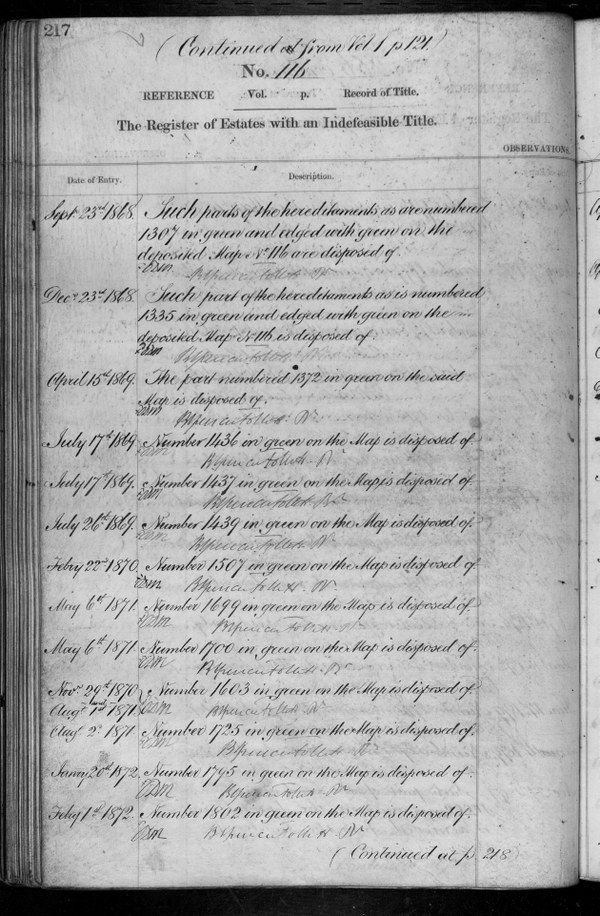 217
(Continued from Vol 1 p 121)
No. 116
REFERENCE Vol. p. Record of Title.
The Register of Estates with an Indefeasible Title.
OBSERVATIONS.
Date of Entry. Description.
Sept. 23rd 1868. Such parts of the hereditaments as are numbered
1307 in green and edged with green on the
deposited Map No 116 are disposed of.
Decr 23rd 1868. Such part of the hereditaments as is numbered
1335 in green and edged with green on the
deposited Map No 116 is disposed of.
April 15th 1869. The part numbered 1372 in green on the said
Map is disposed of.
July 17th 1869 Number 1436 in green on the Map is disposed of
July 17th 1869. Number 1437 in green on the Map is disposed of
July 26th 1869. Number 1439 in green on the Map is disposed of.
Febry 22nd 1870. Number 1507 in green on the Map is disposed of
May 6th 1871. Number 1699 in green on the Map is disposed of.
May 6th 1871. Number 1700 in green on the Map is disposed of.
Novr 29th 1870 Number 1603 in green on the Map is disposed of.
and
Augt 1st 1871
Augt 2d 1871 Number 1725 in green on the Map is disposed of.
Janry 20th 1872. Number 1795 in green on the Map is disposed of.
Febry 1st 1872. Number 1802 in green on the Map is disposed of.
(Continued at p 218)